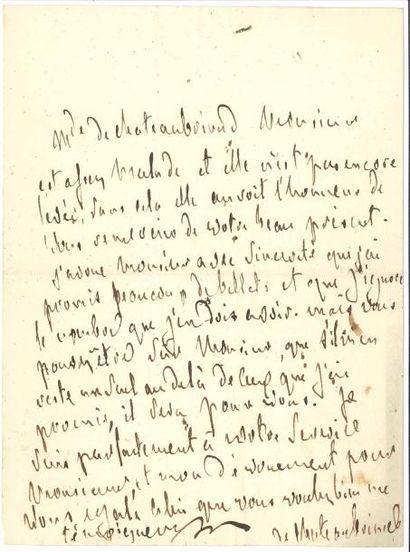 Mde de chateaubriand Monsieur
est assez malade et elle n'est pas encore
levée; sans cela elle auroit l'honneur de
vous remercier de votre beau présent.
J'avoue Monsieur avec sincérité que j'ai
promis beaucoup de billets et que j'ignore
le nombre que j'en dois avoir. mais vous
pouvez être sûr Monsieur, que s'il m'en
reste un seul au delà de ceux que j'ai
promis, il sera pour vous. Je
suis parfaitement à votre service
Monsieur, et mon dévouement pour
vous égale celui que vous voulez bien me
témoigner
de Chateaubriand